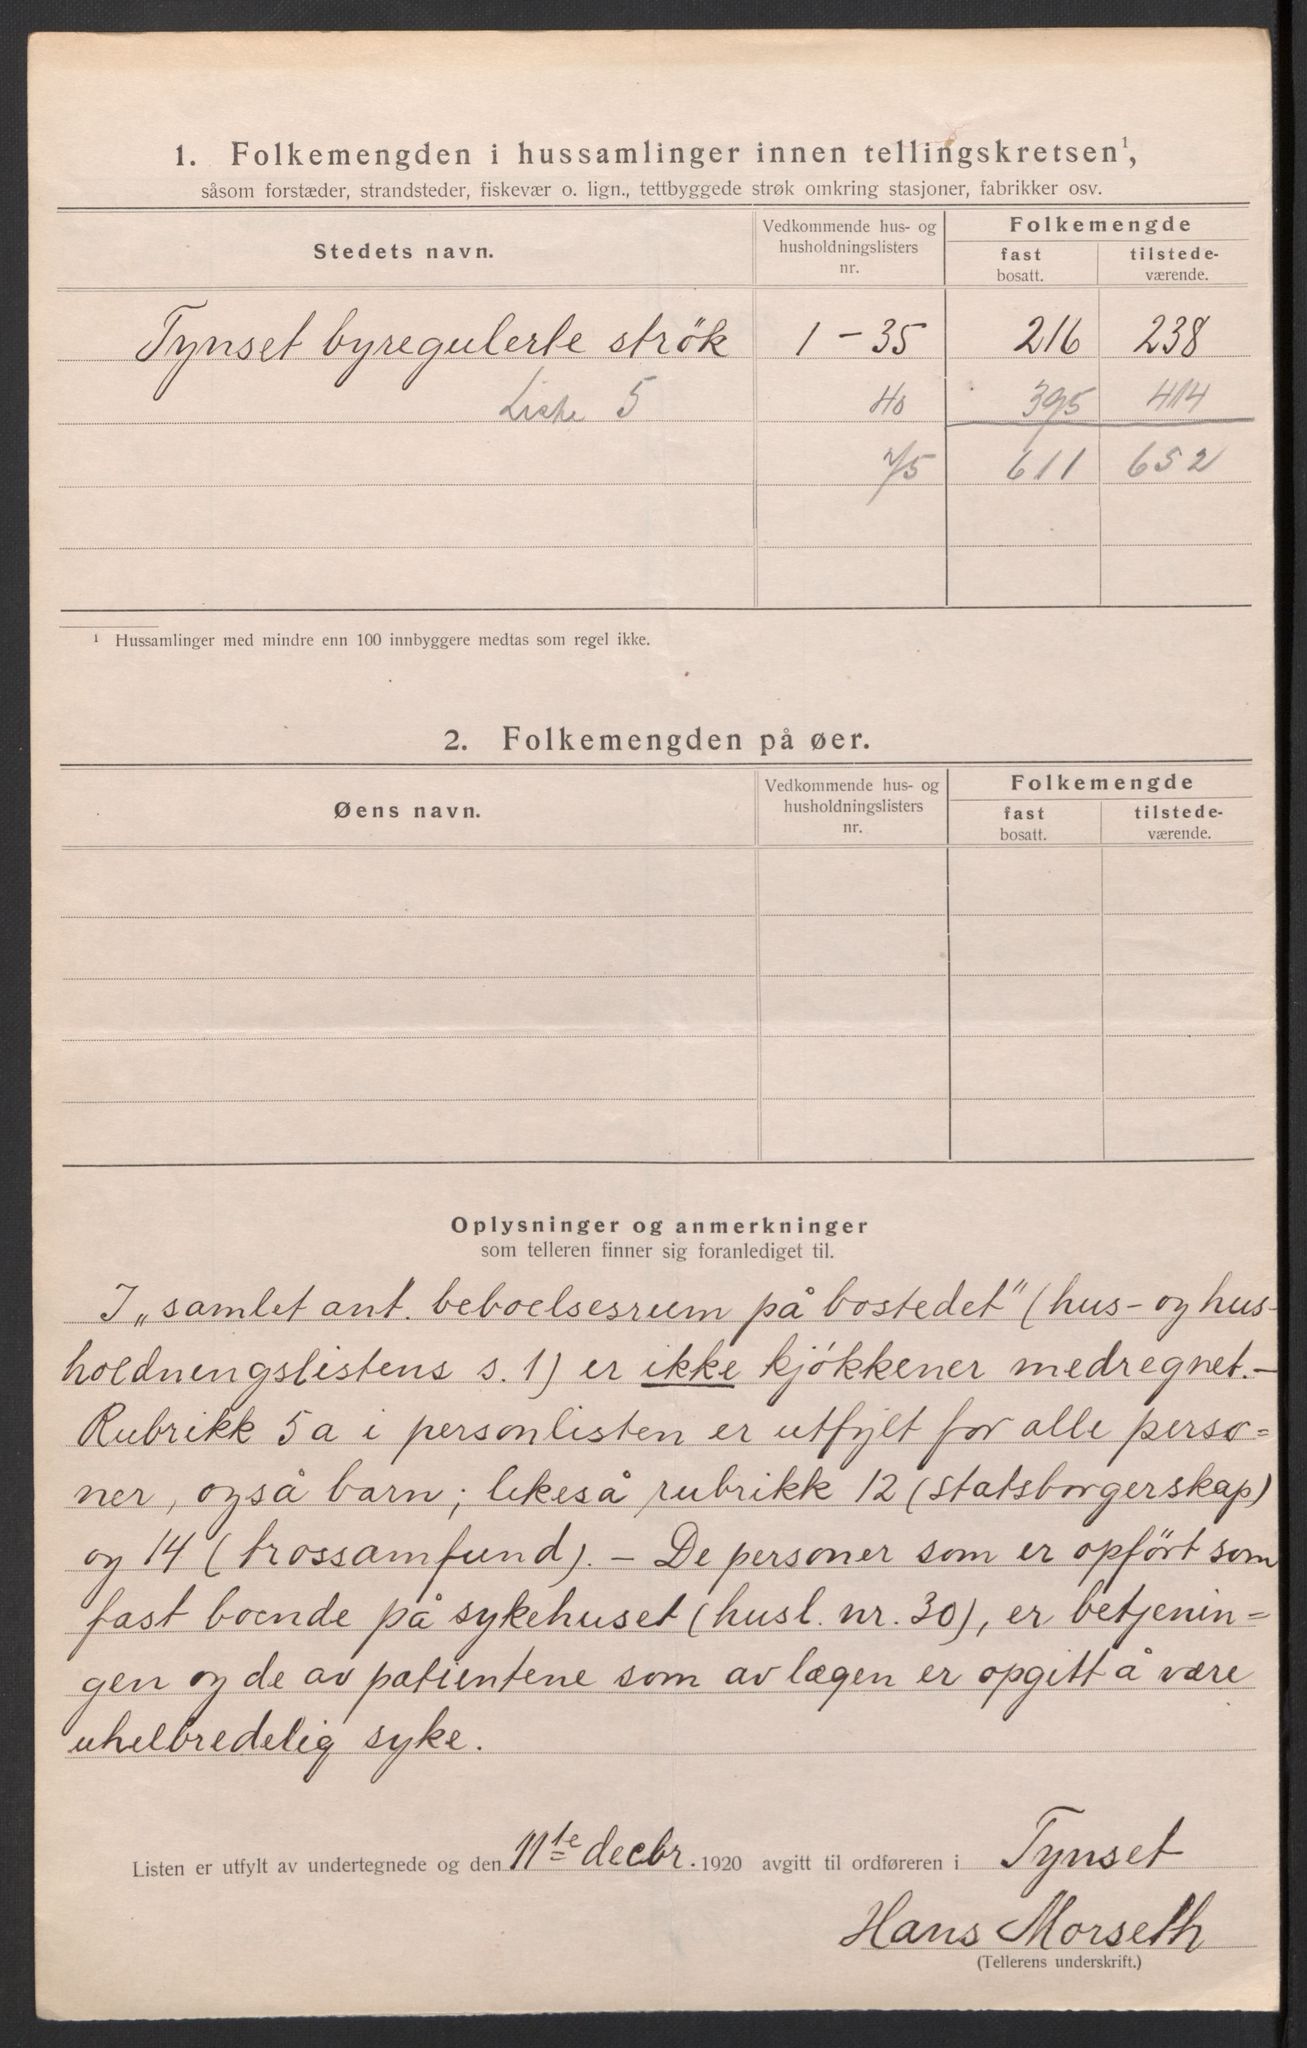 1. Folkemengden i hussamlinger innen tellingskretsen¹,
såsom forstæder, strandsteder, fiskevær o. lign., tettbyggede strøk omkring stasjoner, fabrikker osv.
Stedets navn.
Vedkommende hus- og
husholdningslisters
nr.
Folkemengde
fast
bosatt.
tilstede-
værende.
Tynset byregulerte strök 1 – 35 216 238
Liste 5 40 395 414
75 611 652
¹ Hussamlinger med mindre enn 100 innbyggere medtas som regel ikke.
2. Folkemengden på øer.
Øens navn.
Vedkommende hus- og
husholdningslisters
nr.
Folkemengde
fast
bosatt.
tilstede-
værende.
Oplysninger og anmerkninger
som telleren finner sig foranlediget til.
I „samlet ant. beboelsesrum på bostedet" (hus- og hus-
holdningslistens s. 1) er ikke kjøkkener medregnet. –
Rubrikk 5a i personlisten er utfylt for alle perso=
ner, også barn; likeså rubrikk 12 (statsborgerskap)
og 14 (trossamfund). – De personer som er opført som
fast boende på sykehuset (husl. nr. 30), er betjenin=
gen og de av patientene som av lægen er opgitt å være
uhelbredelig syke.
Listen er utfylt av undertegnede og den 11te decbr. 1920 avgitt til ordføreren i Tynset
Hans Morseth
(Tellerens underskrift.)